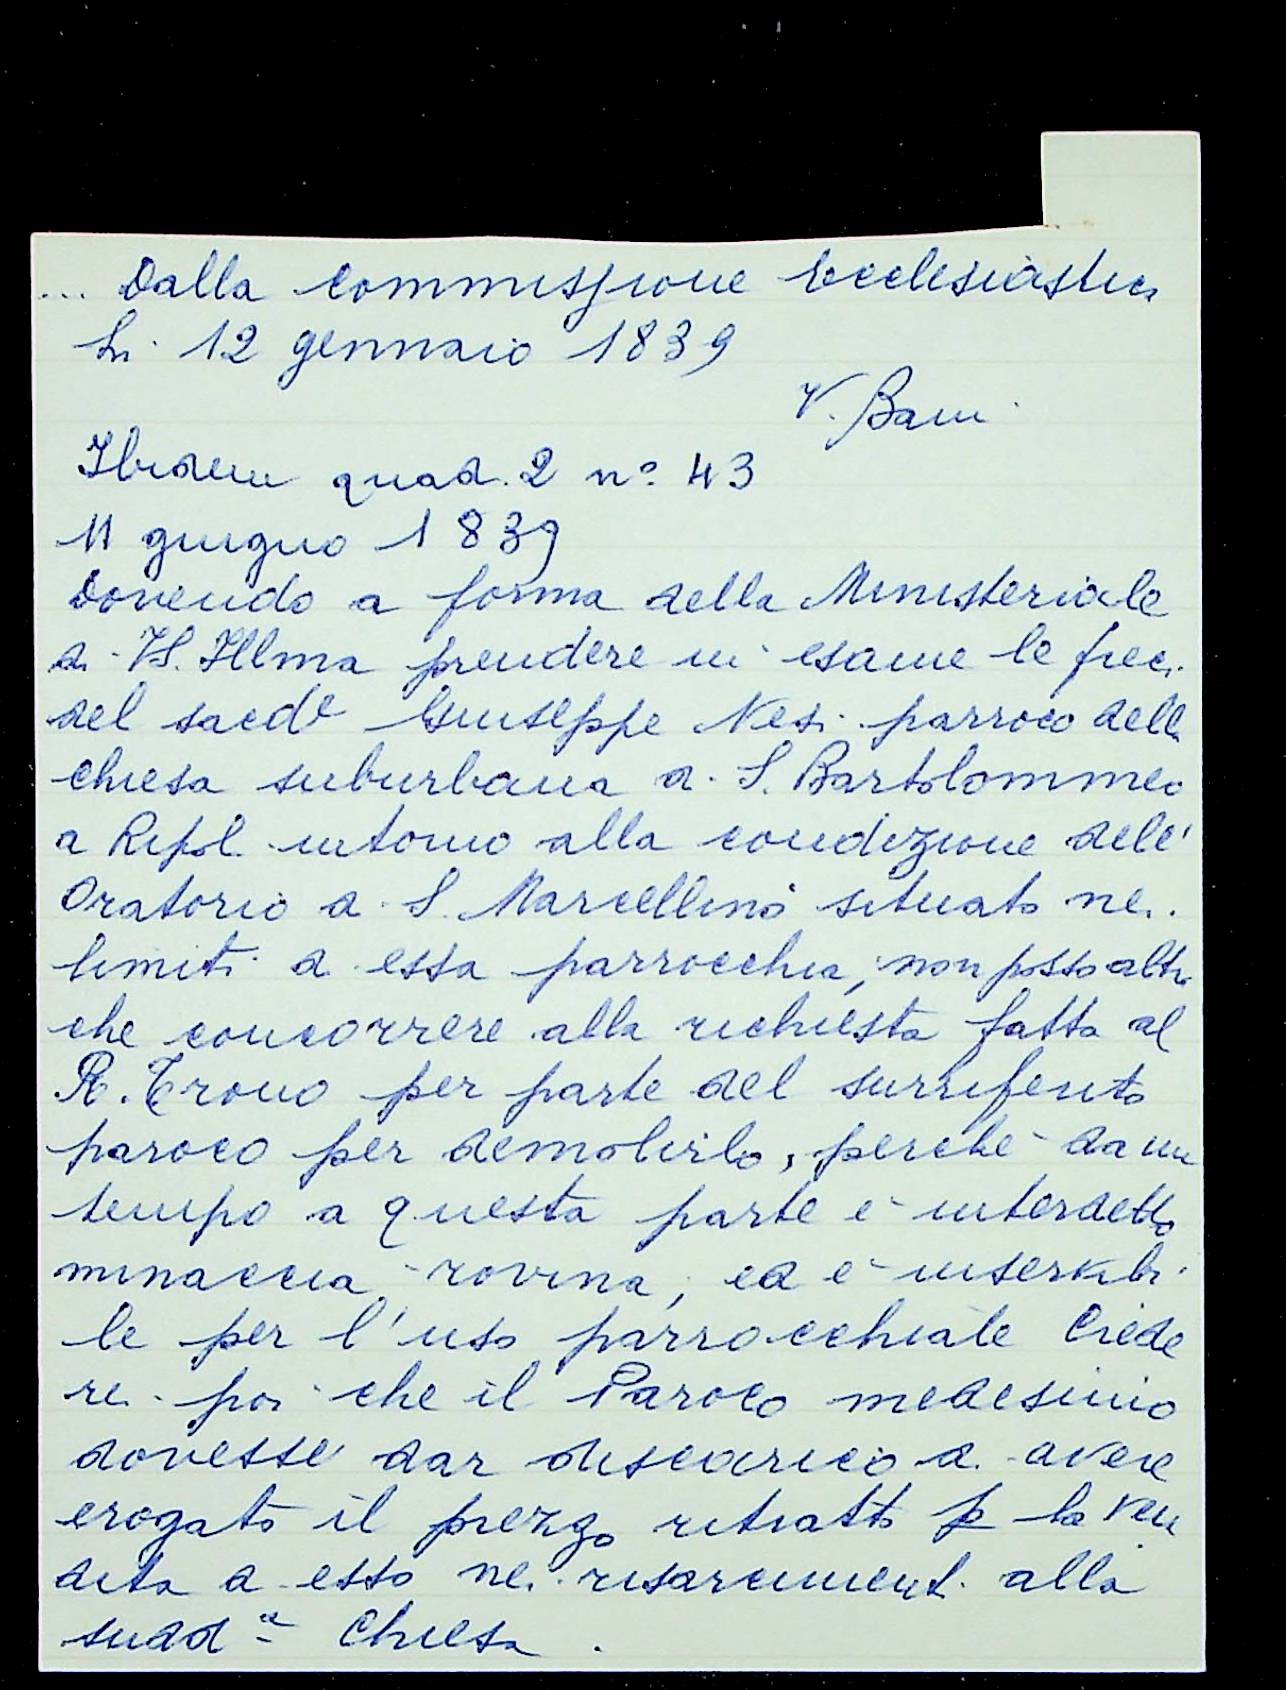 ... Dalla Commissione Ecclesiastica
li 12 gennaio 1839
V. Bani
Ibidem quad. 2 n° 43
11 giugno 1839
Dovendo a forma della Ministeriale
di VS. Illma prendere in esame le preci
del sacde Giuseppe Nesi parroco della
chiesa suburbana di S. Bartolommeo
a Ripoli intorno alla condizione dell'
Oratorio di S. Marcellino situato nei
limiti di essa parrocchia, non posso altro
che concorrere alla richiesta fatta al
R. Trono per parte del surriferito
paroco per demolirlo, perchè da un
tempo a questa parte è interdetto
minaccia rovina, ed è inservibi
le per l'uso parrocchiale Crede
rei poi che il Paroco medesimo
dovesse dar discarico di avere
erogato il prezzo ritratto p la ven
dita di esso nei risarcimenti alla
sudda Chiesa.